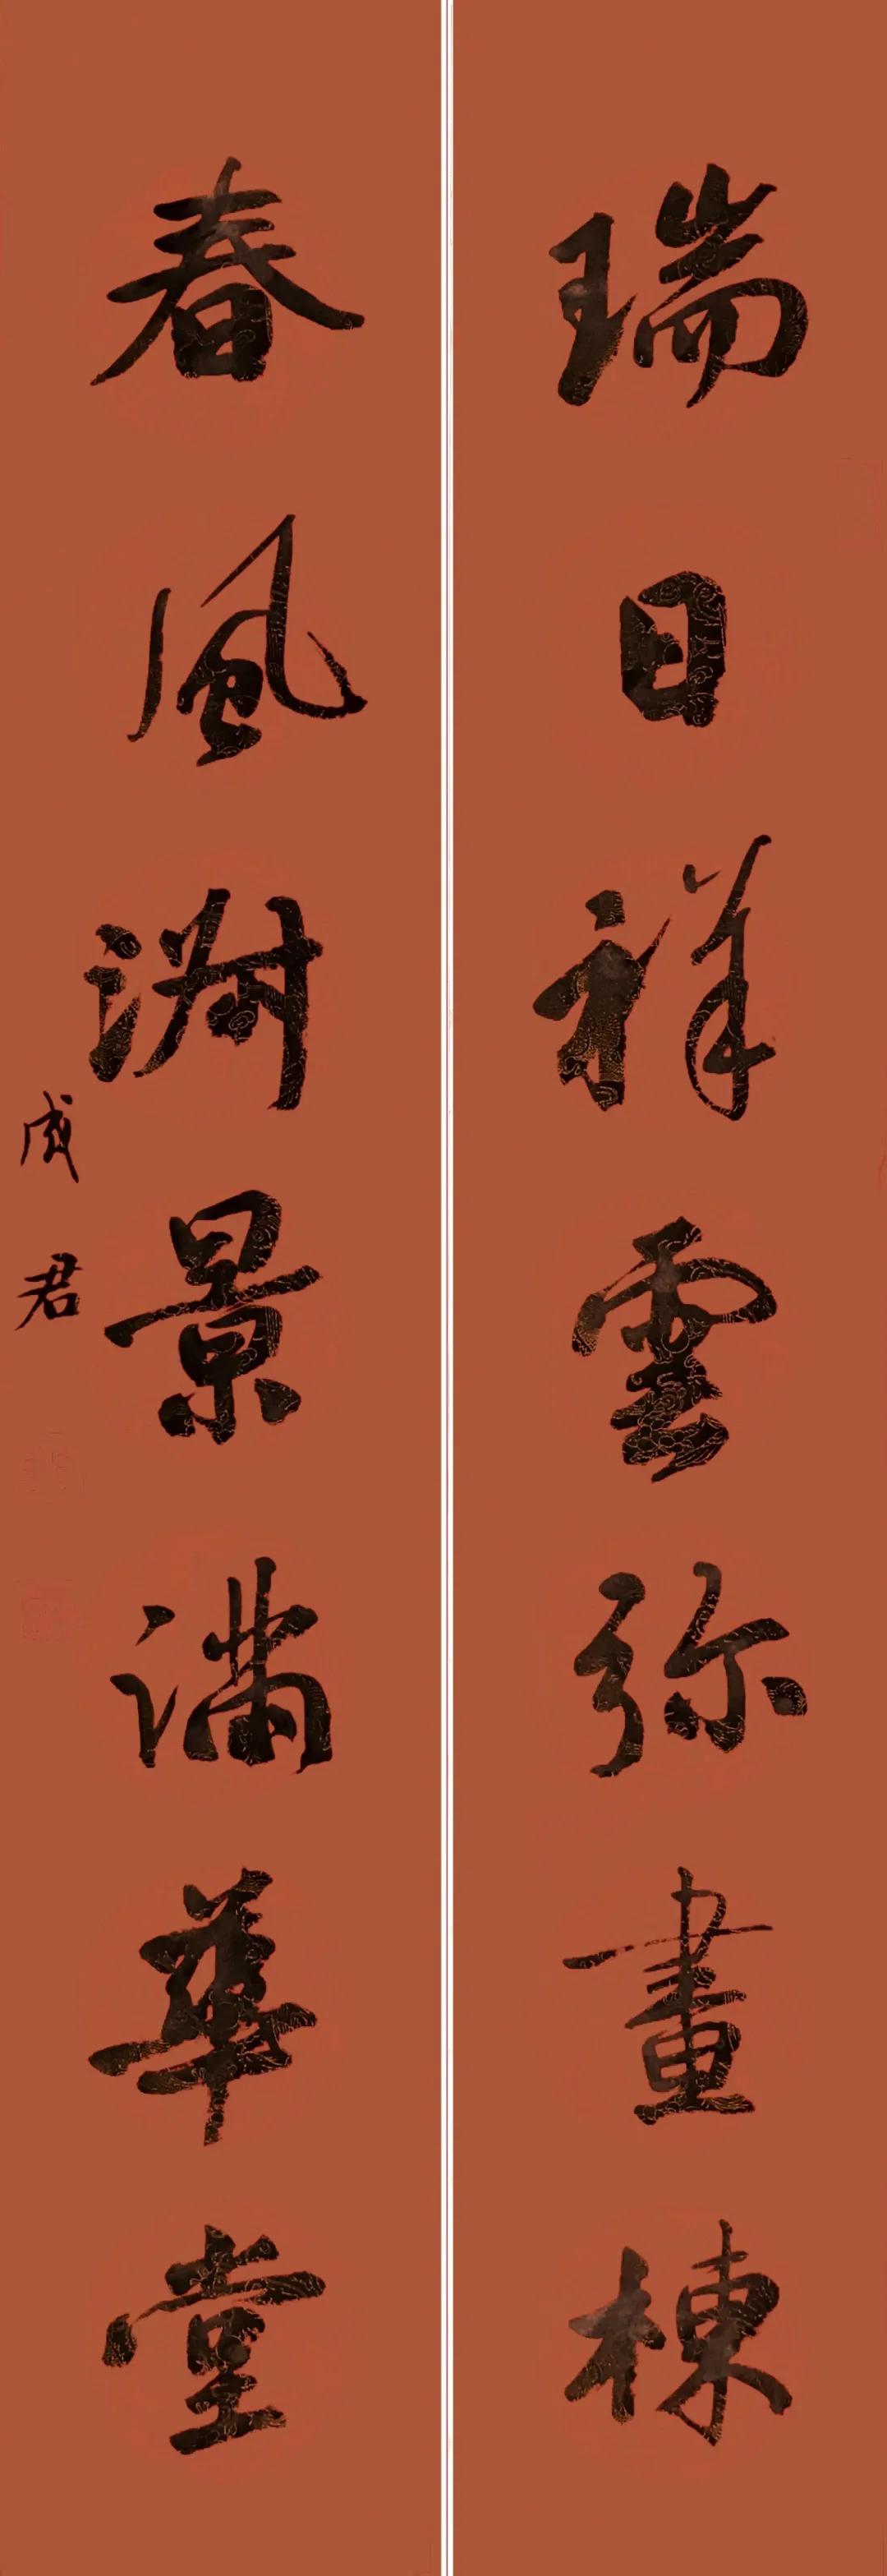 瑞日祥雲弥畫棟
春風淑景满華堂
成君